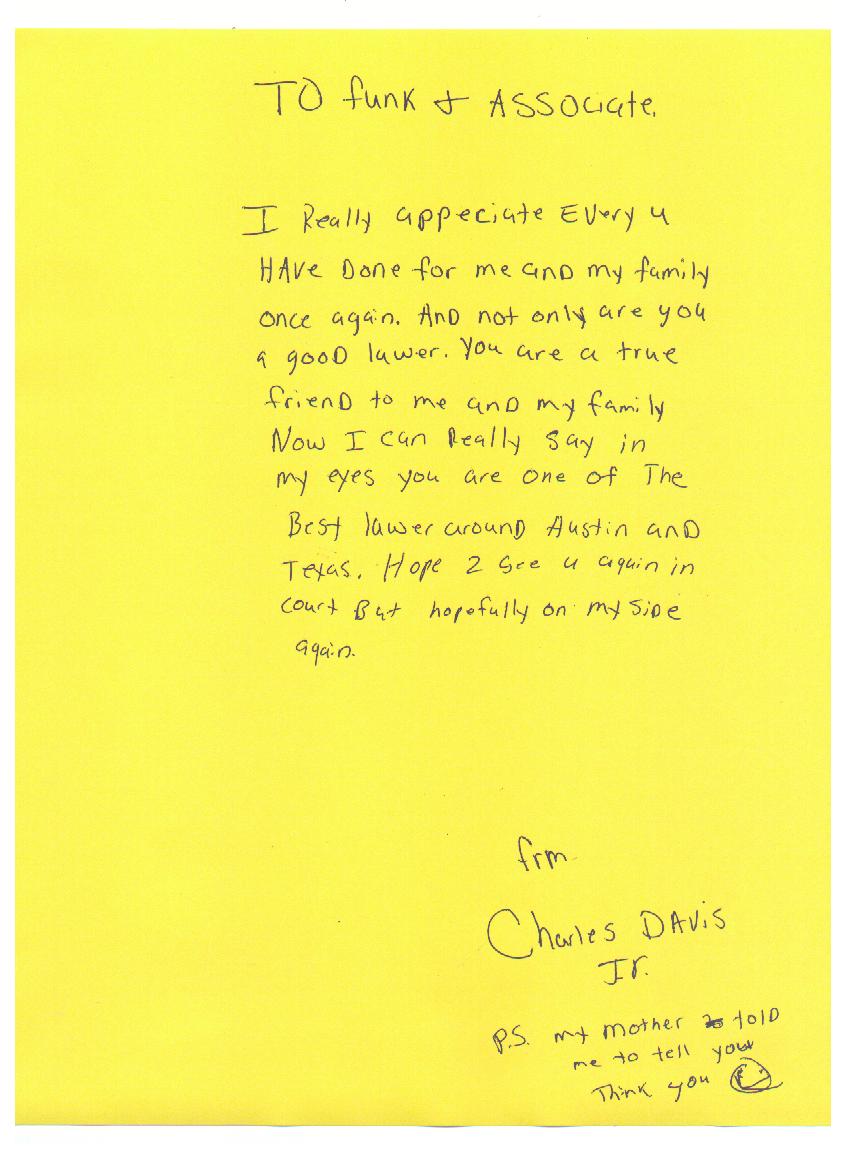 TO funk + ASSociate.
I Really appeciate Every u
HAve Done for me anD my family
once again. AnD not only are you
a gooD lawer. You are a true
frienD to me anD my family
Now I can Really say in
my eyes you are one of The
Best lawer arounD Austin anD
Texas. Hope 2 see u again in
court But hopefully on my SiDe
again.
frm
Charles DAvis
Jr.
P.S. my mother tolD
me to tell you
Think you